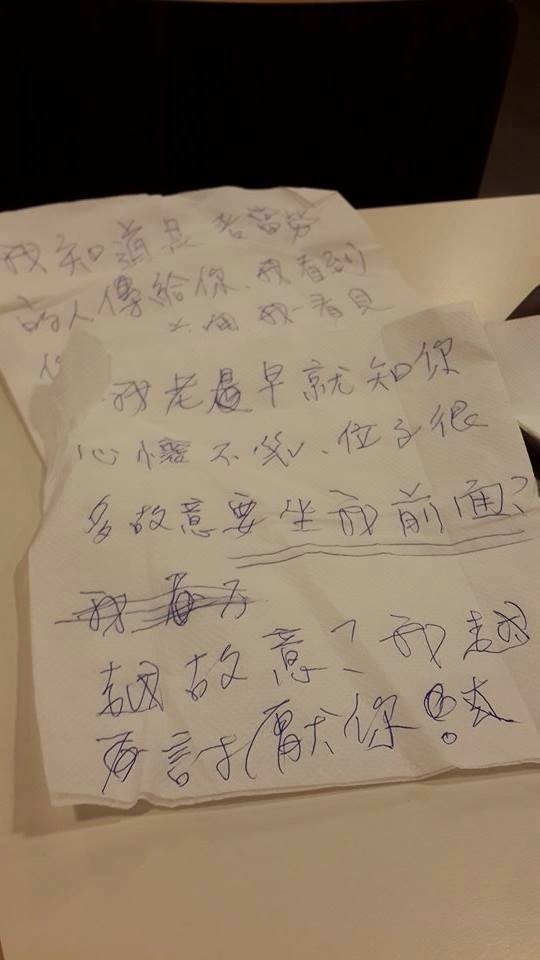 我知道是老當勞
的人傳給你、我看到
我看見
我老早就知你
心懷不
、位子很
多故意要坐我前面?
越故意?我越
討厭你!